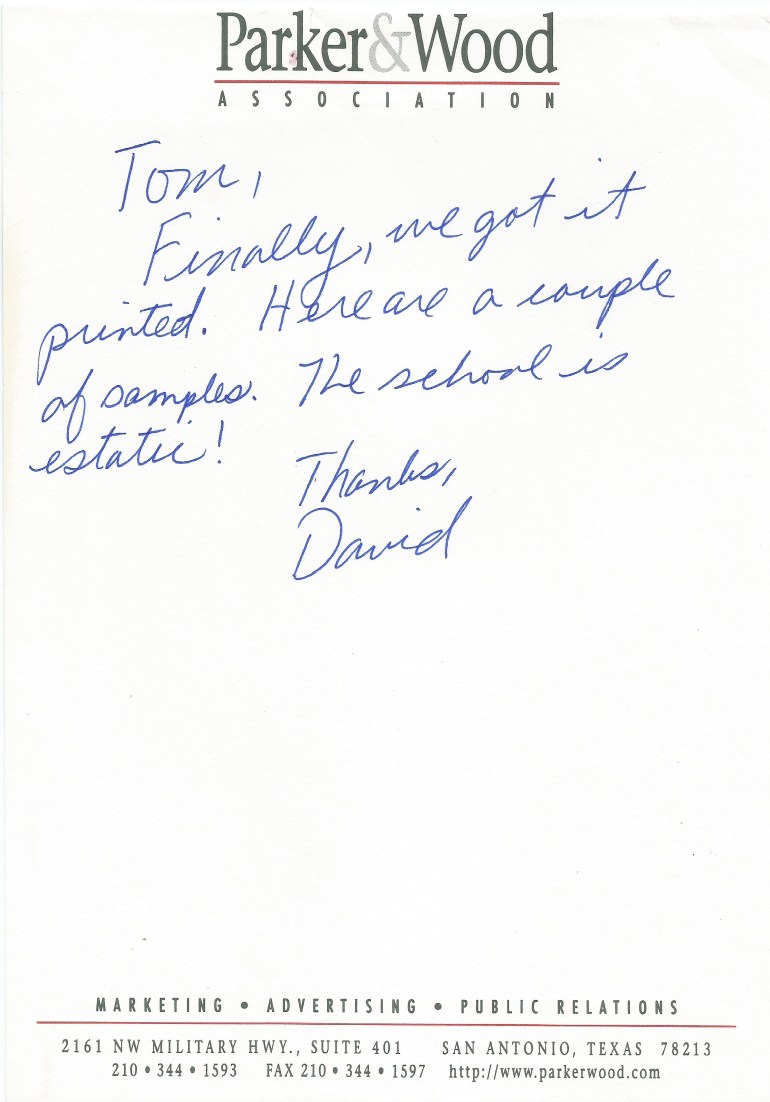 Parker&Wood
ASSOCIATION
Tom,
Finally, we got it
printed. Here are a couple
of samples. The school is
estatic!
Thanks,
David
MARKETING • ADVERTISING • PUBLIC RELATIONS
2161 NW MILITARY HWY., SUITE 401 SAN ANTONIO, TEXAS 78213
210 • 344 • 1593 FAX 210 • 344 • 1597 http://www.parkerwood.com